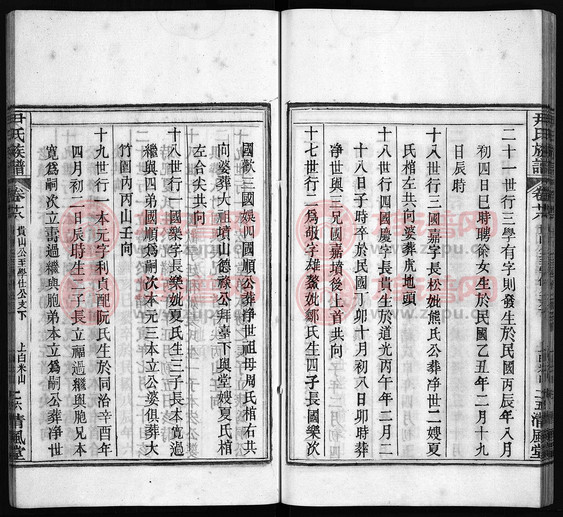 二十一世行三學有字則發生於民國丙辰年八月
初四日巳時聘徐女生於民國乙丑年二月十九
日辰時
十八世行三國嘉字長松妣熊氏公葬净世二嫂夏
氏棺左共向婆葬虎地頭
十八世行四國慶字長貴生於道光丙午年二月二
十八日子時卒於民國丁卯十月初八日卯時葬
净世與三兄國嘉墳後上首共向
十七世行二爲敬字雄鰲妣鄒氏生四子長國樂次
尹氏族譜
卷廿六
上白米山
二五清風堂
國歡三國娛四國順公葬净世祖母周氏棺右共
向婆葬大祖墳山德祿公拜臺下與堂嫂夏氏棺
左合尖共向
十八世行一國樂字長樂妣夏氏生三子長本寬過
繼與四弟國順爲嗣次本元三本立公婆俱葬大
竹園内丙山壬向
十九世行一本元字利貞配阮氏生於同治辛酉年
四月初二日辰時生二子長立福過繼與胞兄本
寬爲嗣次立喬過繼與胞弟本立爲嗣公葬净世
尹氏族譜
卷廿六
貴山公至學仕公支下
上白米山
二六清風堂